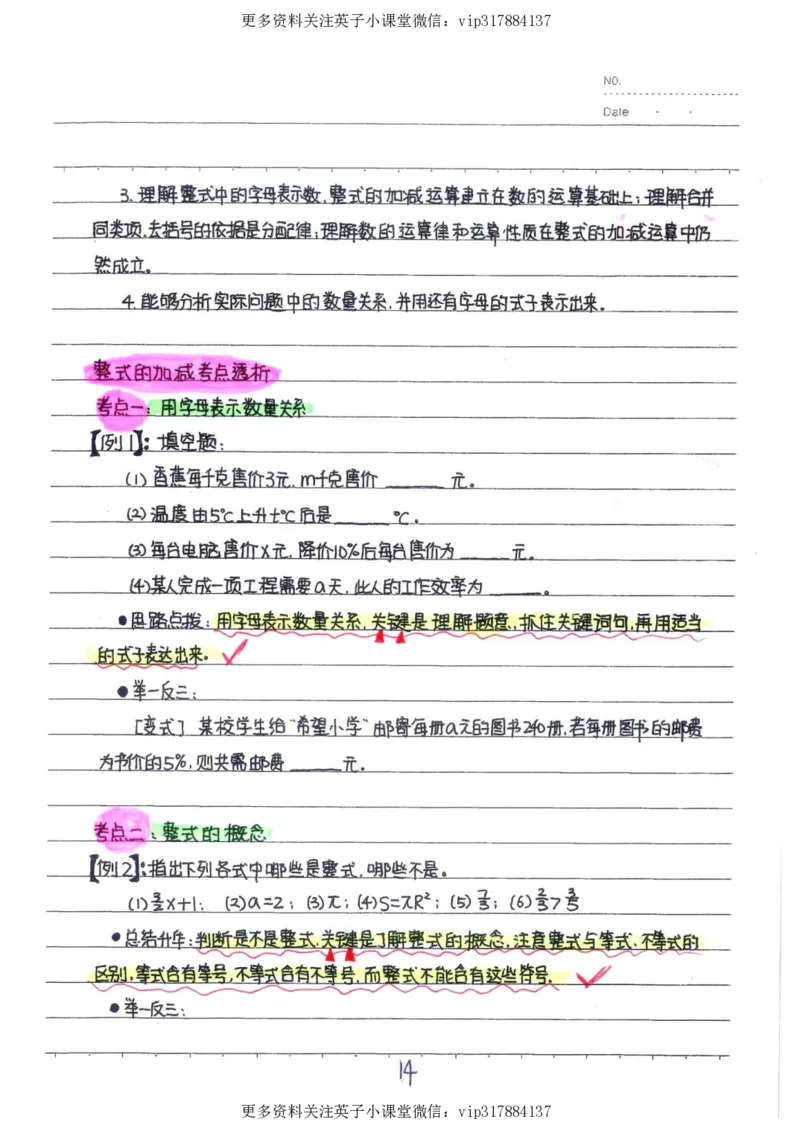 更多资料关注英子小课堂微信：vip317884137
NO.
Date
3.理解整式中的字母表示数，整式的加减运算建立在数的运算基础上；理解合并
同类项、去括号的依据是分配律；理解数的运算律和运算性质在整式的加减运算中仍
然成立。
4.能够分析实际问题中的数量关系，并用还有字母的式子表示出来。
整式的加减考点透析
考点一：用字母表示数量关系
【例1】：填空题：
(1)香蕉每千克售价3元，m千克售价______元。
(2)温度由5℃上升t℃后是______℃。
(3)每台电脑售价x元，降价10%后每台售价为______元。
(4)某人完成一项工程需要a天，此人的工作效率为______。
●思路点拨：用字母表示数量关系，关键是理解题意，抓住关键词句，再用适当
的式子表达出来。
●举一反三：
[变式] 某校学生给“希望小学”邮寄每册a元的图书240册，若每册图书的邮费
为书价的5%，则共需邮费______元。
考点二：整式的概念
【例2】：指出下列各式中哪些是整式，哪些不是。
(1)3/2x+1；(2)a=2；(3)π；(4)S=πR²；(5)7/3；(6)2/3>3/5
●总结升华：判断是不是整式，关键是了解整式的概念，注意整式与等式、不等式的
区别，等式含有等号，不等式含有不等号，而整式不能含有这些符号.
●举一反三：
14
更多资料关注英子小课堂微信：vip317884137